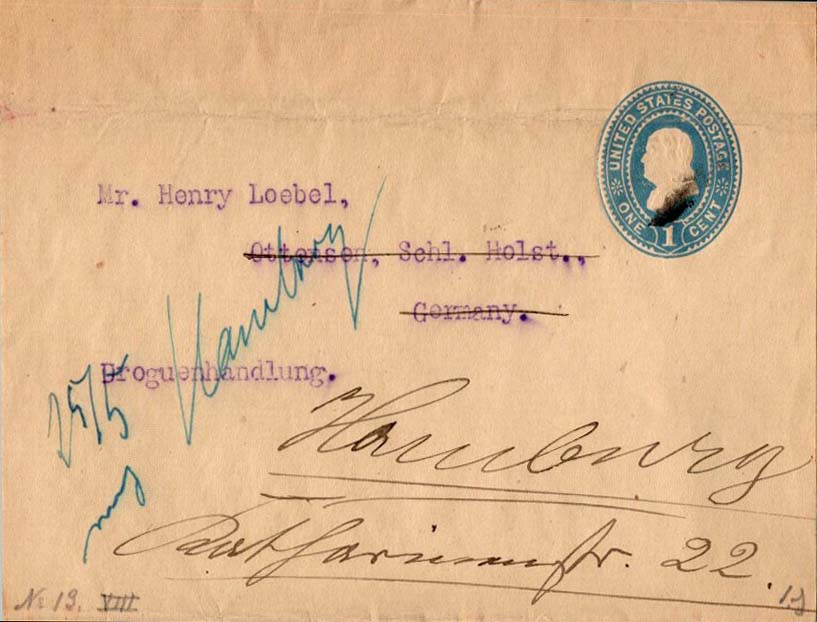 UNITED STATES POSTAGE
ONE 1 CENT
Mr. Henry Loebel,
Ottensen, Schl. Holst.,
Germany.
Hamburg
Droguenhandlung.
25/5
Hamburg
Catharinenstr. 22.
No 13. VIII